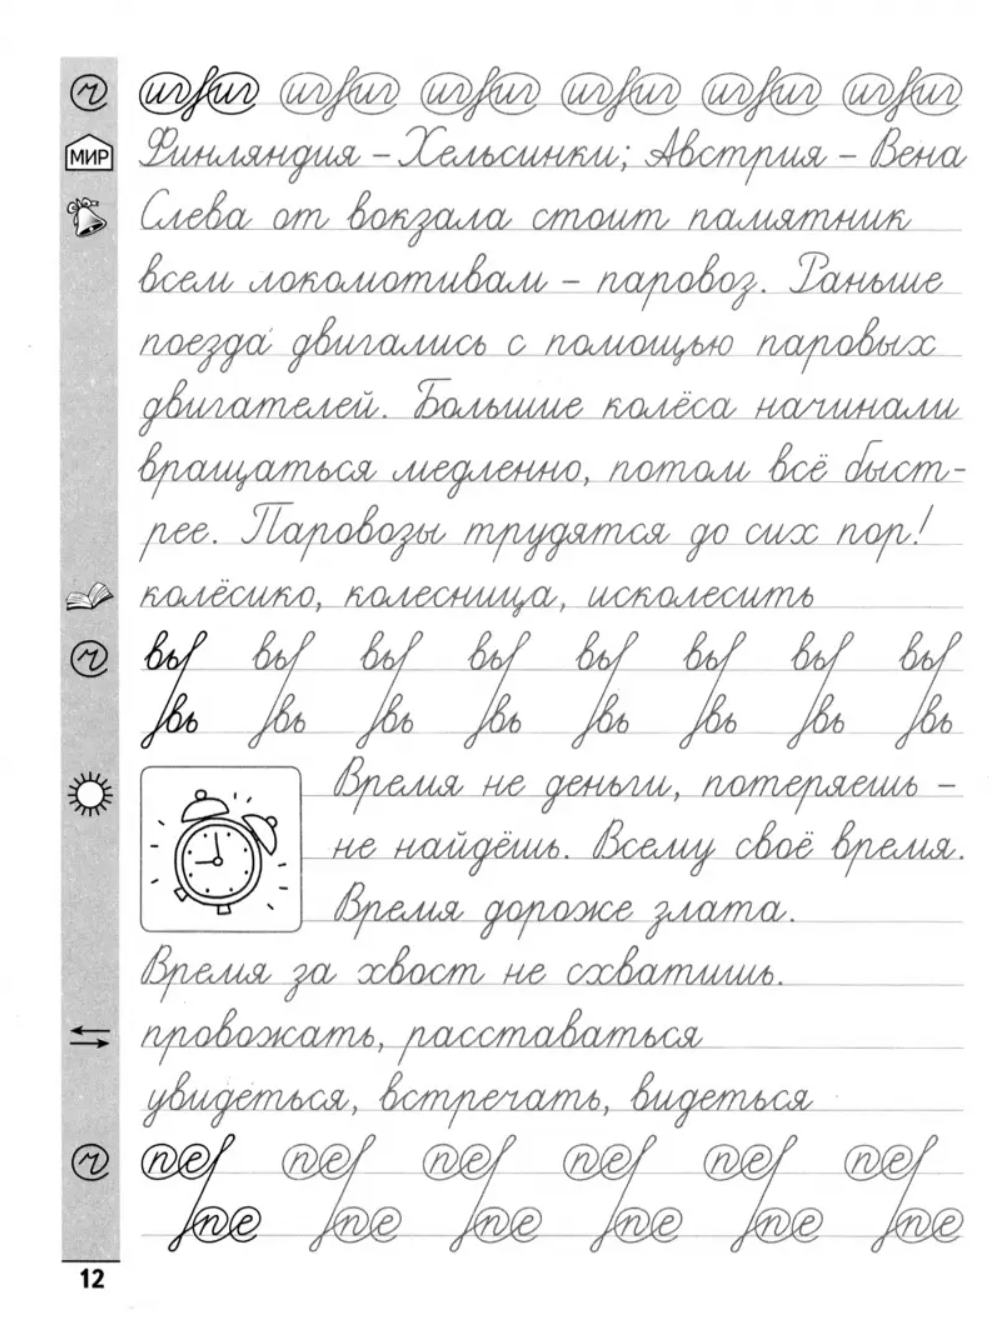 иг иг иг иг иг иг иг иг иг иг иг иг
МИР
Финляндия – Хельсинки; Австрия – Вена
Слева от вокзала стоит памятник
всем локомотивам – паровоз. Раньше
поезда́ двигались с помощью паровых
двигателей. Большие колёса начинали
вращаться медленно, потом всё быст-
рее. Паровозы трудятся до сих пор!
колёсико, колесница, исколесить
вы вы вы вы вы вы вы вы
вь вь вь вь вь вь вь вь
Время не деньги, потеряешь –
не найдёшь. Всему своё время.
Время дороже злата.
Время за хвост не схватишь.
провожать, расставаться
увидеться, встречать, видеться
пе пе пе пе пе пе
пе пе пе пе пе пе
12